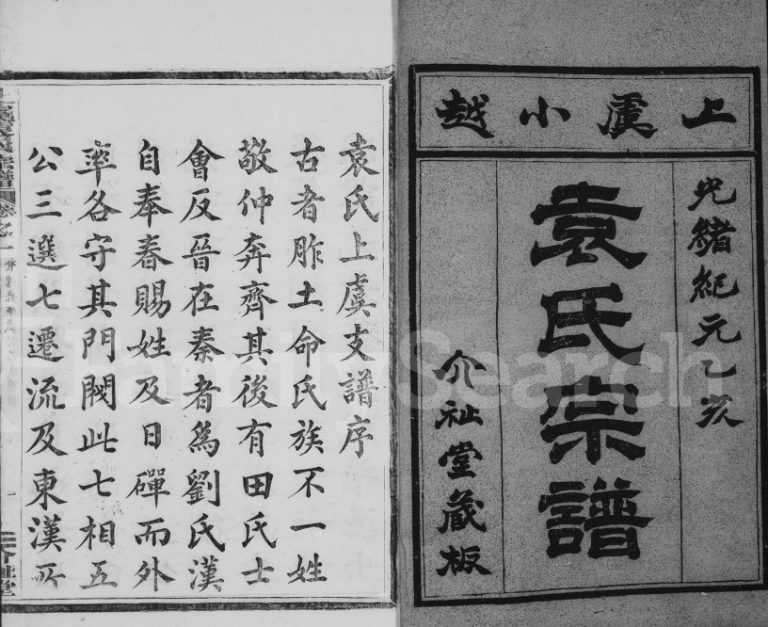 上虞小越
光緒紀元乙亥
袁氏宗譜
介祉堂藏板
袁氏上虞支譜序
古者胙土命氏族不一姓
敬仲奔齊其後有田氏士
會反晉在秦者為劉氏漢
自奉春賜姓及日磾而外
率各守其門閥此七相五
公三選七遷流及東漢所
卷之一
介祉堂
FamilySearch